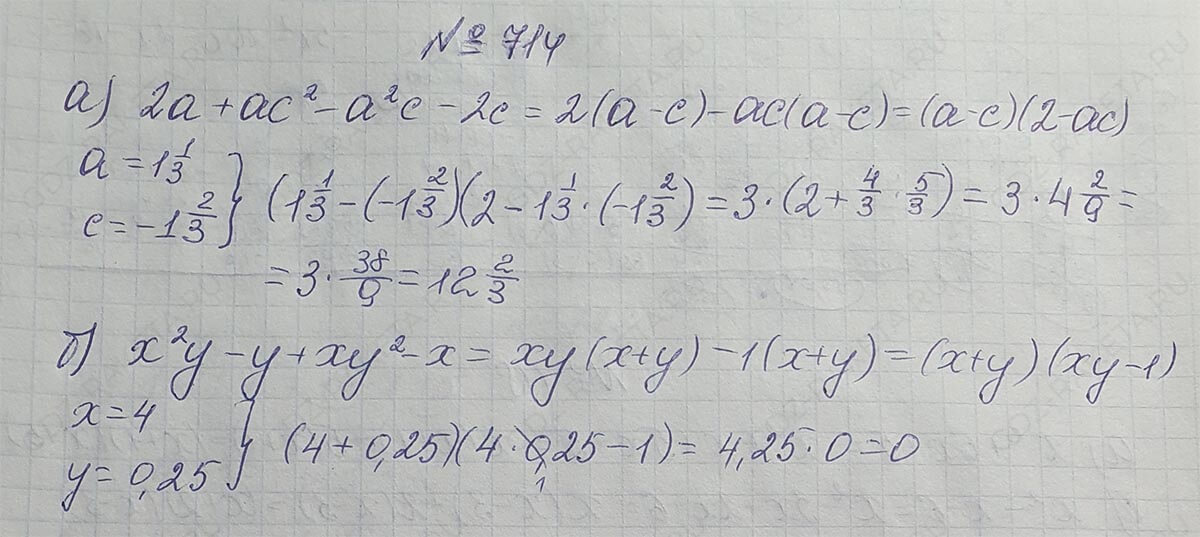 № 714
а) 2a + ac² - a²c - 2c = 2(a - c) - ac(a - c) = (a - c)(2 - ac)
a = 1 1/3
c = -1 2/3 } (1 1/3 - (-1 2/3)(2 - 1 1/3 · (-1 2/3) = 3 · (2 + 4/3 · 5/3) = 3 · 4 2/9 =
= 3 · 38/9 = 12 2/3
б) x²y - y + xy² - x = xy(x + y) - 1(x + y) = (x + y)(xy - 1)
x = 4
y = 0,25 } (4 + 0,25)(4 · 0,25 - 1) = 4,25 · 0 = 0